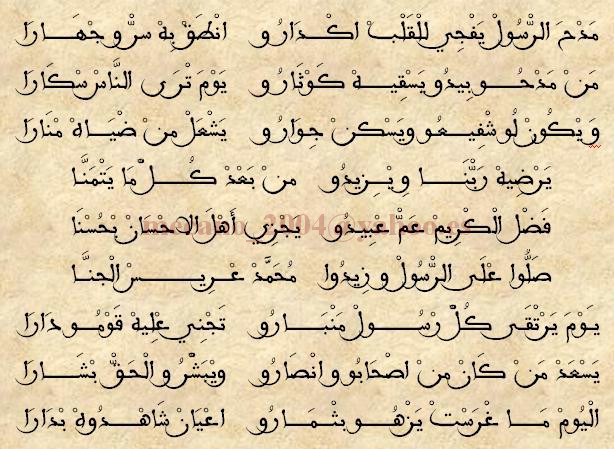 مَدْحَ الرَّسُولْ يَفْجِي لِلْقَلْبْ اكْدَارُو انْطَقْ بِهْ سرّْ وجْهَارَا
مَنْ مَدْحُو بِيدُو يَسْقِيهْ كَوْثَارُو يَوْمَ تْرَى النَّاسْ سْكَارَا
وَيْكُونْ لُو شْفِيعُو وِيَسْكنْ جِوَارُو يَشْعَلْ منْ ضْيَاهْ مْنَارَا
يَرْضِيهْ رَبّْنَا ويْزِيدُو منْ بَعْدْ كُلّْ مَا يَتْمَنَّا
فَضْل الْكْرِيمْ عَمّْ عبِيدُو يجْزِي أَهْلَ الاحْسَانْ بْحُسْنَا
صَلُّوا عْلَى الرَّسُولْ وزِيدُوا مُحَمَّدْ عْرِيسْ الْجنَّا
يَوْمَ يَرْتقَى كُلّْ رْسُولْ مَنْبَارُو تَجْنِي عْلِيهْ قَوْمُو دَارَا
يَسْعَدْ مَنْ كَانْ منْ اصْحَابُو وانْصَارُو ويْبَشّْرُو الْحَقّْ بْشَارَا
الْيُومْ مَا غْرَسْتْ يَزْهُو بثْمَارُو اعْيَانْ شَاهْدُوهْ بْدَارَا